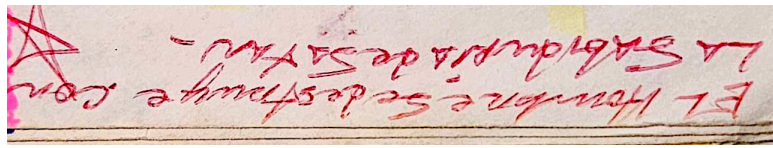 EL Hombre Se destruye con
LA SAbiduRiA de SAtAn -